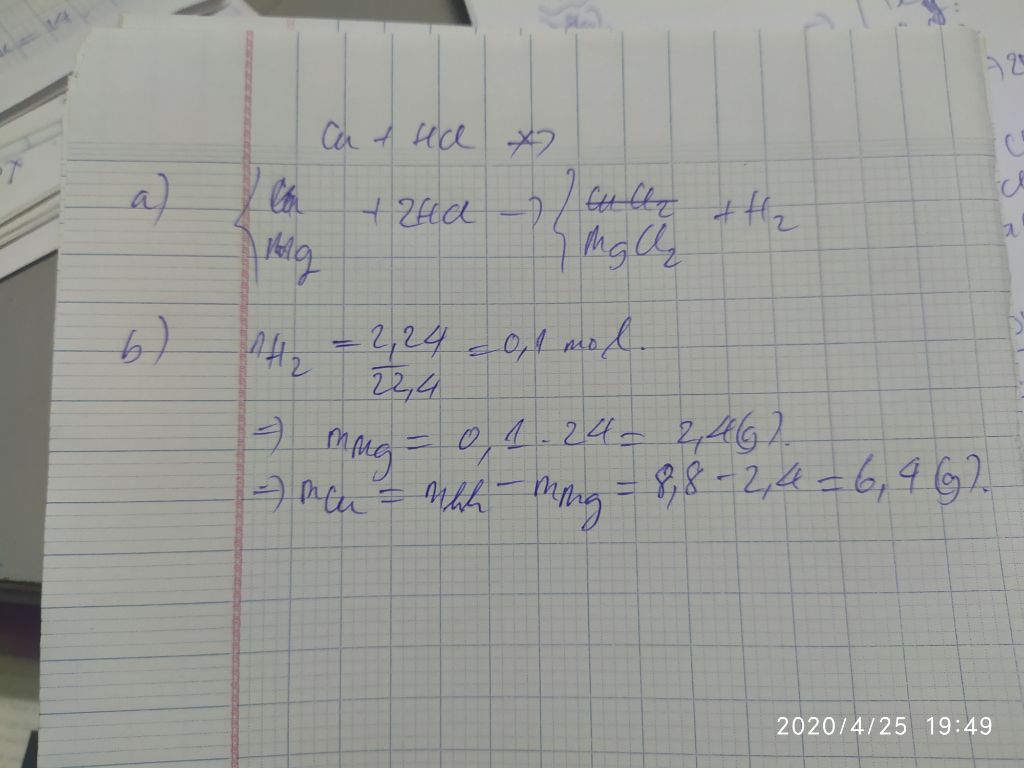 Cu + HCl ↛
a) { Cu + 2HCl → { CuCl₂ + H₂
Mg MgCl₂
b) nH₂ = 2,24/22,4 = 0,1 mol.
=> mMg = 0,1 . 24 = 2,4(g).
=> mCu = mhh - mMg = 8,8 - 2,4 = 6,4 (g).
2020/4/25 19:49